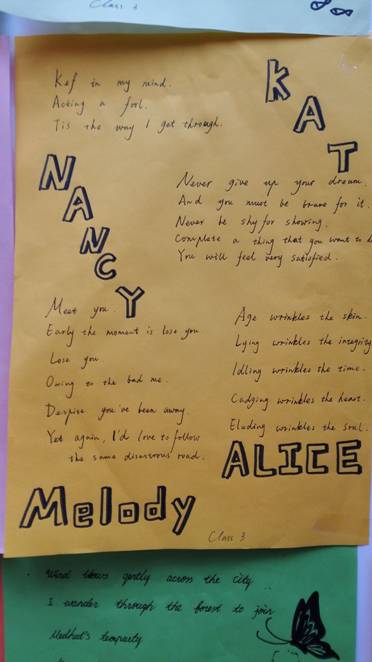 Class 3
Kef in my mind.
Acting a fool.
Tis the way I get through.
KAT
NANCY
Never give up your dream.
And you must be brave for it.
Never be shy for showing.
Complete a thing that you want to
You will feel very satisfied.
Meet you.
Early the moment is lose you
Lose you
Owing to the bad me.
Despite you've been away.
Yet again, I'd love to follow
the same disastrous road.
Melody
Age wrinkles the skin.
Lying wrinkles the integrity
Idling wrinkles the time.
Cadging wrinkles the heart.
Eluding wrinkles the soul.
ALICE
Class 3
Wind blows gently across the city
I wander through the forest to join